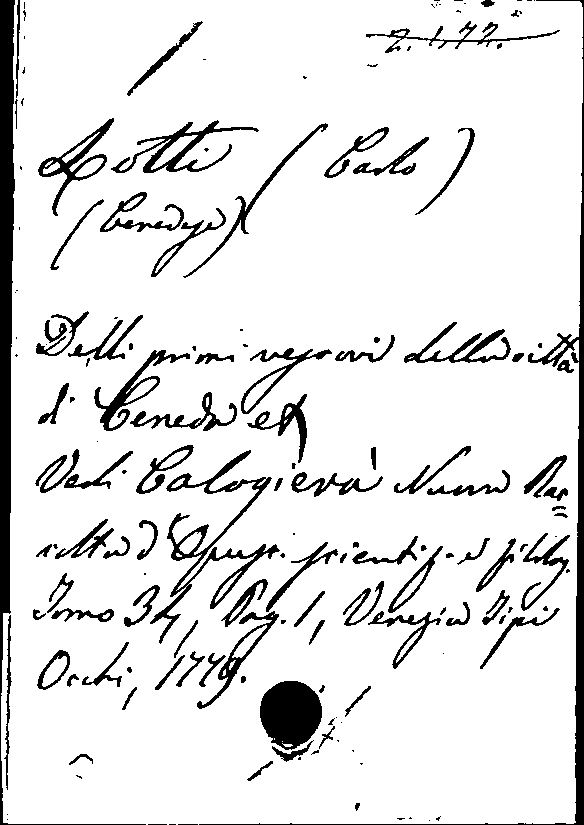 2.1.72.
Lotti (Carlo)
(Cenedese)
Delli primi vescovi della città
di Ceneda
Vedi Calogierà Nuova Rac=
colta d'Opusc. scientif. e filolog.
Tomo 34, Pag. 1, Venezia Tipi
Occhi, 1779.